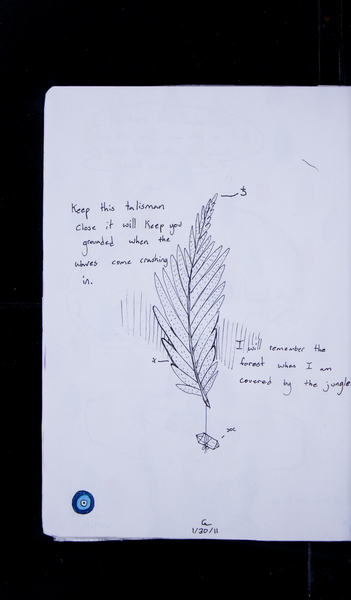 Keep this talisman
close it will keep you
grounded when the
waves come crashing
in.
I will remember the
forest when I am
covered by the jungle
1/30/11